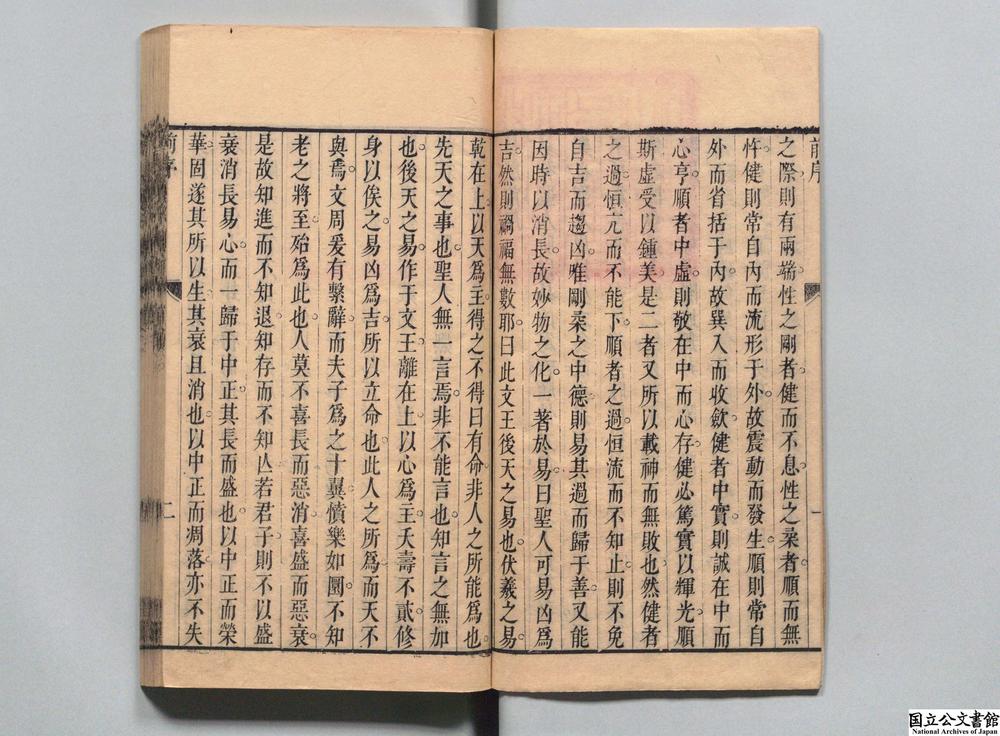 前序
一
之際則有兩端性之剛者健而不息性之柔者順而無
忤健則常自內而流形于外故震動而發生順則常自
外而省括于內故巽入而收歛健者中實則誠在中而
心亨順者中虛則敬在中而心存健必篤實以輝光順
斯虛受以鍾美是二者又所以載神而無敗也然健者
之過恒亢而不能下順者之過恒流而不知止則不免
自吉而趨凶唯剛柔之中德則易其過而歸于善又能
因時以消長故妙物之化一著於易曰聖人可易凶爲
吉然則禍福無數耶曰此文王後天之易也伏羲之易
乾在上以天爲主得之不得曰有命非人之所能爲也
先天之事也聖人無一言焉非不能言也知言之無加
也後天之易作于文王離在上以心爲主夭壽不貳修
身以俟之易凶爲吉所以立命也此人之所爲而天不
與焉文周爰有繫辭而夫子爲之十翼憤樂如圜不知
老之將至殆爲此也人莫不喜長而惡消喜盛而惡衰
是故知進而不知退知存而不知亾若君子則不以盛
衰消長易心而一歸于中正其長而盛也以中正而榮
華固遂其所以生其衰且消也以中正而凋落亦不失
前序
二
国立公文書館
National Archives of Japan